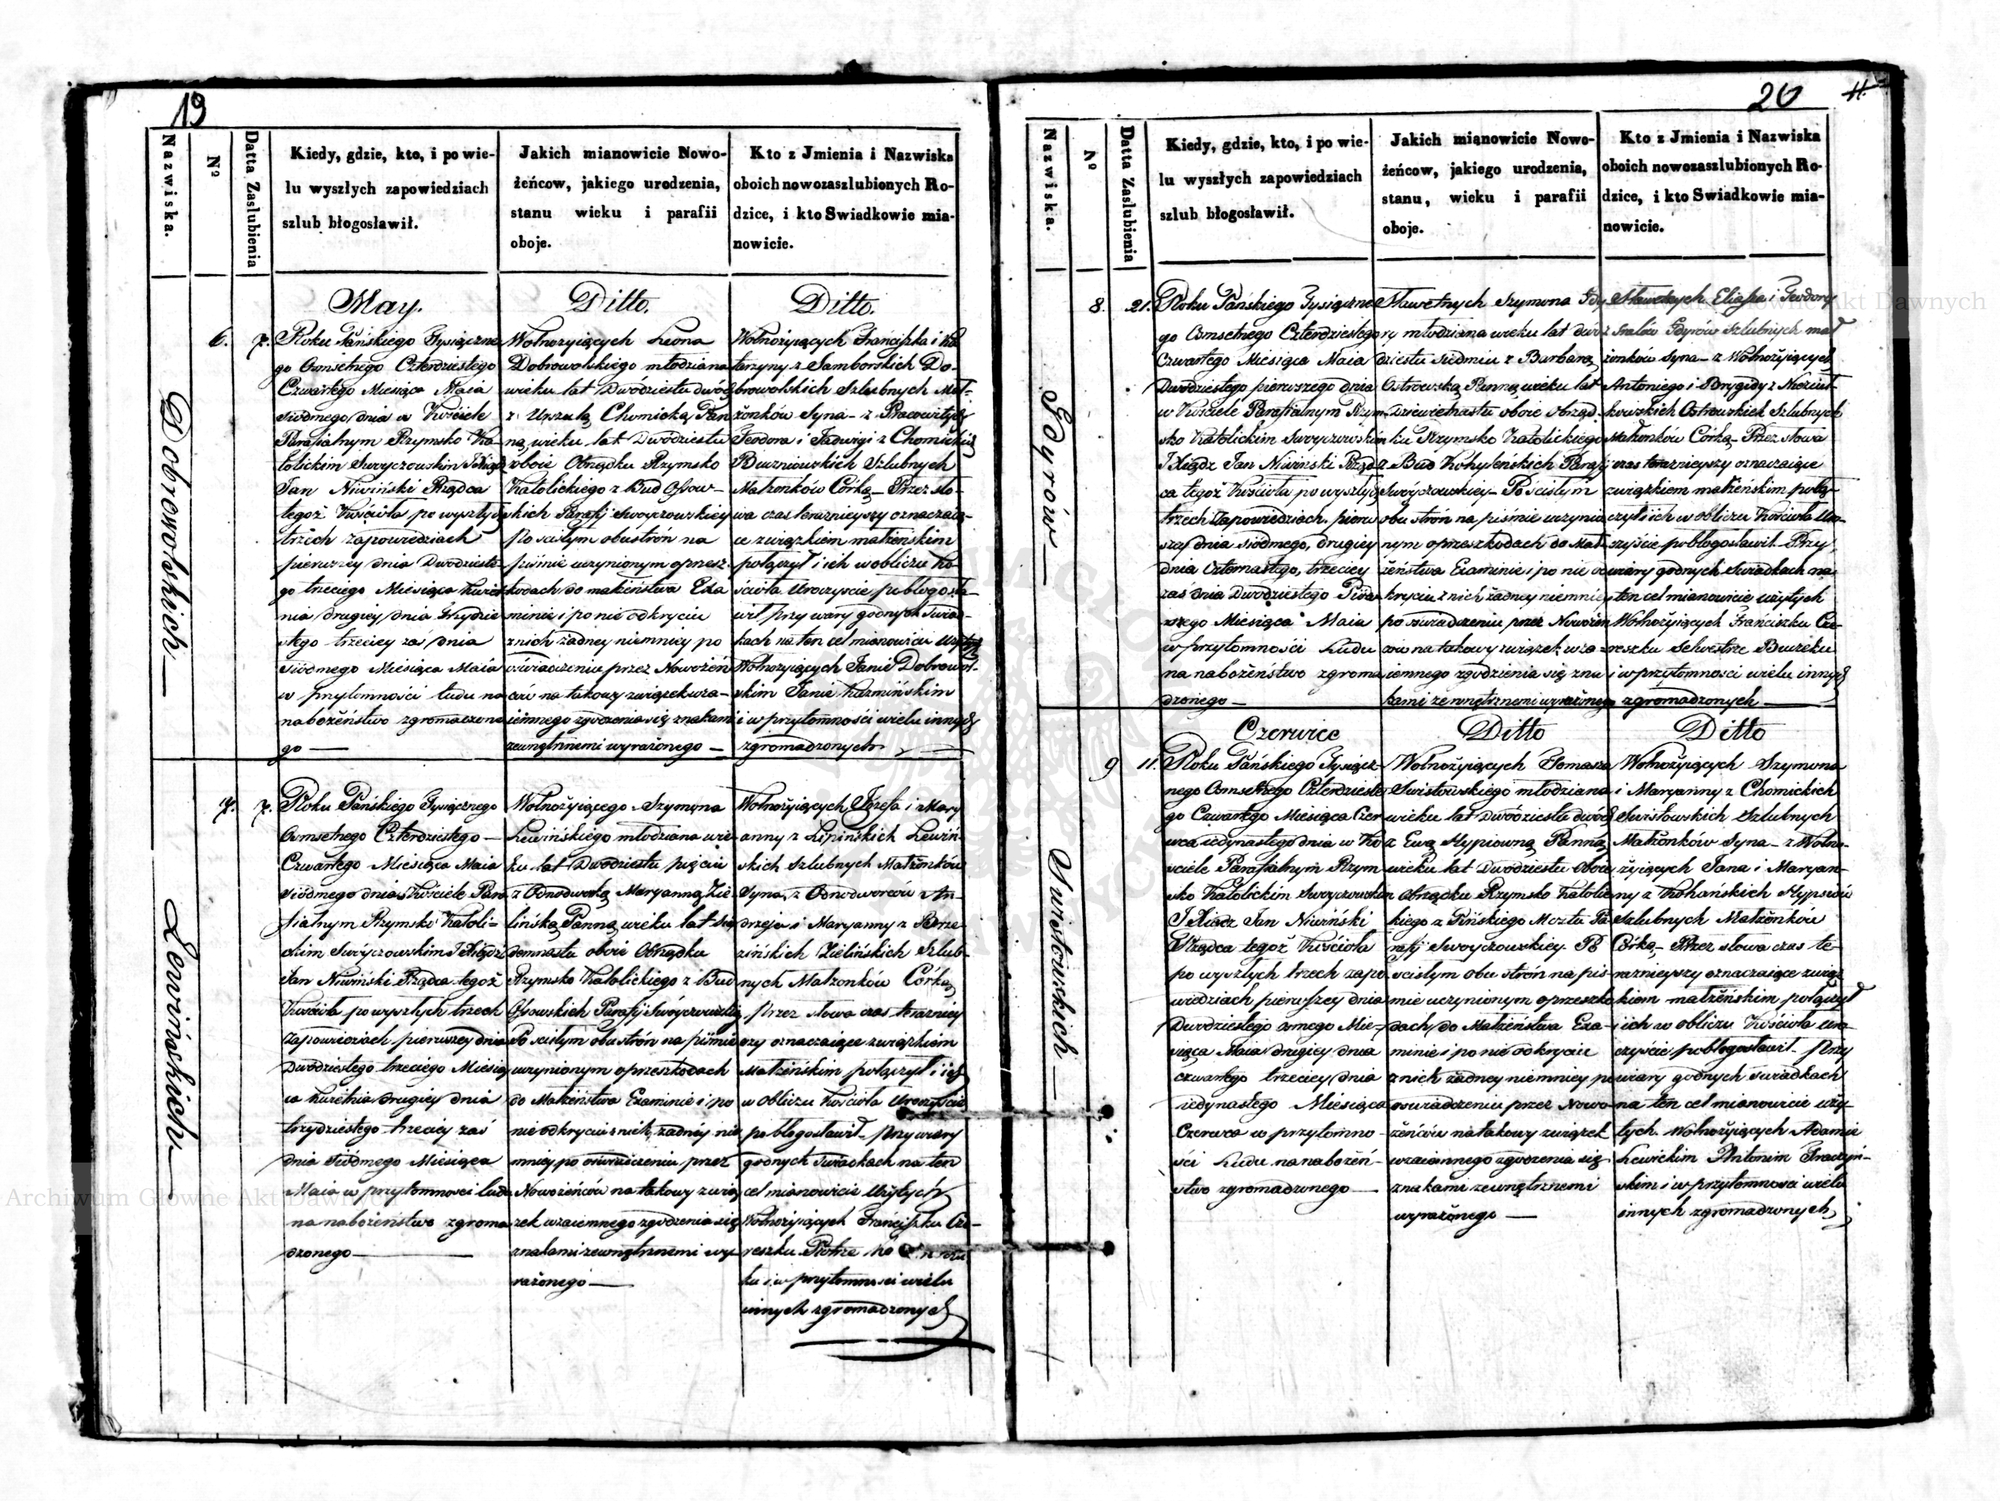 19
Nazwiska.
Nº
Datta Zaslubienia
Kiedy, gdzie, kto, i po wie-
lu wyszłych zapowiedziach
szlub błogosławił.
Jakich mianowicie Nowo-
żeńcow, jakiego urodzenia,
stanu wieku i parafii
oboje.
Kto z Jmienia i Nazwiska
oboich nowozaszlubionych Ro-
dzice, i kto Swiadkowie mia-
nowicie.
Dobrowolskich
6.
7.
May.
Roku Pańskiego Tysiączne
go Osmsetnego Czterdziestego
Czwartego Miesiąca Maia
Siódmego dnia w Kościele
Parafialnym Rzymsko Ka
tolickim Swoyczowskim JXiądz
Jan Niwiński Rządca
tegoż Kościoła po wyszłych
trzech zapowiedziach
pierwszey dnia Dwudzieste
go trzeciego Miesiąca Kwiet
nia drugiey dnia
stego trzeciey zaś dnia
Siódmego Miesiąca Maia
w przytomności ludu na
nabożeństwo zgromadzone
go
Ditto.
Wolnożyiących Leona
Dobrowolskiego młodziana
wieku lat Dwudziestu dwóch
z Urszulą Chomicką Pan
ną wieku lat Dwudziestu
oboie Obrządku Rzymsko
Katolickiego z Bud Ossow-
skich Parafij Swoyczowskiey
Po scisłym obustrón na
piśmie uczynionym oprzesz-
kodach do małżeństwa Exa
minie i po nie odkryciu
znich żadney niemniey po
oświadczeniu przez Nowożeń
ców na takowy związek wza-
iemnego zgodzenia się znakami
zewnętrznemi wyrażonego
Ditto.
Wolnożyiących Franciszka i Ka
tarzyny z Samborskich Do-
browolskich Szlubnych Mał-
żonków Syna - z Pracowitych
Teodora i Jadwigi z Chomickich
Szlubnych
Małżonków Córką - Przez sło-
wa czas teraznieyszy oznaczaią-
ce związkiem małżeńskim
połączył i ich w obliczu Ko-
ścioła Uroczyscie pobłogosła-
wił przy wiary godnych Swiad-
kach na ten cel mianowicie Użytych
Wolnożyiących Janie Dobrowol-
skim Janie Kuzmińskim
i w przytomności wielu innych
zgromadzonych
Lewińskich
7.
7.
Roku Pańskiego Tysiącznego
Osmsetnego Czterdziestego
Czwartego Miesiąca Maia
Siódmego dnia w Kościele Para
fialnym Rzymsko Katoli-
ckim Swóyczowskim JXiądz
Jan Niwiński Rządca tegoż
Kościoła po wyszłych trzech
Zapowiedziach pierwszey dnia
Dwudziestego trzeciego Miesią
ca Kwietnia drugiey dnia
trzydziestego trzeciey zaś
dnia Siódmego Miesiąca
Maia w przytomności ludu
na nabożeństwo zgroma
dzonego
Wolnożyiącego Szymona
Lewińskiego młodziana wie-
ku lat Dwudziestu pięciu
z Odnodworką Maryanną Zie-
lińską Panną wieku lat Sie
demnastu oboie Obrządku
Rzymsko Katolickiego z Bud
Ossowskich Parafij Swóyczowskiey
Po scisłym obustrón na piśmie
uczynionym oprzeszkodach
do Małżeństwa Examinie i po
nie odkryciu znich żadney nie
mniey po oświadczeniu przez
Nowożeńców na takowy zwią
zek wzaiemnego zgodzenia się
znakami zewnętrznemi wy-
rażonego
Wolnożyiących Józefa i Mary
anny z Lipińskich Lewiń-
skich Szlubnych Małżonków
Syna, z Odnodworców An-
drzeia i Maryanny z Brze-
zińskich Zielińskich Szlub-
nych Małżonków Córką
Przez słowa czas teraźniey
szy oznaczaiące związkiem
Małżeńskim połączył i ich
w obliczu Kościoła Uroczyście
pobłogosławił - Przy wiary
godnych Swiadkach na ten
cel mianowicie Użytych
Wolnożyiących Franciszku Ce-
reszku Piotrze
ku i w przytomności wielu
innych zgromadzonych
20
11
Nazwiska.
Nº
Datta Zaslubienia
Kiedy, gdzie, kto, i po wie-
lu wyszłych zapowiedziach
szlub błogosławił.
Jakich mianowicie Nowo-
żeńcow, jakiego urodzenia,
stanu, wieku i parafii
oboje.
Kto z Jmienia i Nazwiska
oboich nowozaszlubionych Ro-
dzice, i kto Swiadkowie mia-
nowicie.
Gdyrów
8.
21.
Roku Pańskiego Tysiączne
go Osmsetnego Czterdziestego
Czwartego Miesiąca Maia
Dwudziestego pierwszego dnia
w Kościele Parafialnym Rzym-
sko Katolickim Swoyczowskim
JXiądz Jan Niwiński Rząd
ca tegoż Kościoła po wyszłych
trzech Zapowiedziach pierw
szey dnia siódmego, drugiey
dnia Czternastego, trzeciey
zaś dnia Dwudziestego Pierw
szego Miesiąca Maia
w przytomności Ludu
na nabożeństwo zgroma
dzonego
Sławetnych Szymona Gdy
ry młodziana wieku lat dwu
dziestu siedmiu z Barbarą
Ostrowską Panną wieku lat
Dziewietnastu oboie obrząd
ku Rzymsko Katolickiego
z Bud Kohyleńskich Parafij
Swóyczowskiey - Po scisłym
obu strón na piśmie uczynio
nym oprzeszkodach do Mał
żeństwa Examinie i po nie od
kryciu z nich żadney niemniey
po oswiadczeniu przez Nowożeń
ców na takowy związek wza-
iemnego zgodzenia się zna
kami zewnętrznemi wyrażonego
Sławetnych Eliasza i Teodory
z Gdyrów Szlubnych mał
żonków Syna - z Wolnożyiących
Antoniego i Brygidy z
Ostrowskich Szlubnych
Małżonków Córką - Przez słowa
czas teraznieyszy oznaczaiące
związkiem małżeńskim połą-
czył i ich w obliczu Kościoła Uro-
czyście pobłogosławił - Przy
wiary godnych Swiadkach na
ten cel mianowicie użytych
Wolnożyiących Franciszku Ce-
reszku Selwestrze
i w przytomności wielu innych
zgromadzonych
Swistowskich
9
11.
Czerwiec
Roku Pańskiego Tysiącz-
nego Osmsetnego Czterdzieste
go Czwartego Miesiąca Czer
wca iedynastego dnia w Ko
ściele Parafialnym Rzym
sko Katolickim Swoyczowskim
JXiądz Jan Niwiński
Rządca tegoż Kościoła
po wyszłych trzech zapo
wiedziach pierwszey dnia
Dwudziestego osmego Mie-
siąca Maia drugiey dnia
czwartego trzeciey dnia
iedynastego Miesiąca
Czerwca w przytomno-
ści Ludu na nabożeń-
stwo zgromadzonego
Ditto
Wolnożyiących Tomasza
Swistowskiego młodziana
wieku lat Dwudziestu dwóch
z Ewą Hypiówną Panną
wieku lat Dwudziestu Oboie
Obrządku Rzymsko Katolic
kiego z Pińskiego Mostu Pa
rafij Swoyczowskiey. Po
scisłym obu strón na piś-
mie uczynionym oprzeszko
dach do Małżeństwa Exa-
minie i po nie odkryciu
znich żadney niemniey po
oswiadczeniu przez Nowo
żeńców na takowy związek
wzaiemnego zgodzenia się
znakami zewnętrznemi
wyrażonego
Ditto
Wolnożyiących Szymona
i Maryanny z Chomickich
Swistowskich Szlubnych
Małżonków Syna - z Wolno-
żyiących Jana i Maryan-
ny z Kohańskich
Szlubnych Małżonków
Córką - Przez słowa czas te-
raznieyszy oznaczaiące związ
kiem małżeńskim połączył
i ich w obliczu Kościoła uro-
czyście pobłogosławił - Przy
wiary godnych Swiadkach
na ten cel mianowicie uży-
tych Wolnożyiących Adamie
Lewickim Antonim
skim i w przytomności wielu
innych zgromadzonych
Archiwum Główne Akt Dawnych